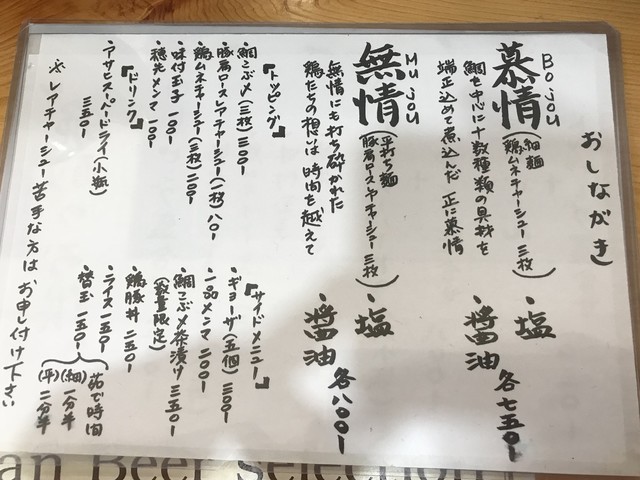 おしながき
慕情
Bojou
(細麺
鶏ムネチャーシュー三枚)
鯛を中心に十数種類の具材を
端正込めて煮込んだ 正に慕情
・塩
・醤油
各七五〇-
無情
Mujou
(平打ち麺
豚肩ロースレアチャーシュー三枚)
無情にも打ち砕かれた
鶏たちの想いは 時間を越えて
・塩
・醤油
各八〇〇-
『トッピング』
・鯛こぶ〆(三枚)三〇〇-
・豚肩ロースレアチャーシュー(一枚)八〇-
・鶏ムネチャーシュー(三枚)二〇〇-
・味付玉子 一〇〇-
・穂先メンマ 一〇〇-
『ドリンク』
・アサヒスーパードライ(小瓶)
三五〇-
『サイドメニュー』
・ギョーザ(五個)三〇〇-
・一品メンマ 二〇〇-
・鯛こぶ〆茶漬け 三五〇-
(数量限定)
・鶏豚丼 二五〇-
・ライス 一五〇-
・替玉 一五〇-
茹で時間
(細)一分半
(平)二分半
※レアチャーシュー苦手な方は お申し付け下さい
an Beer Selection